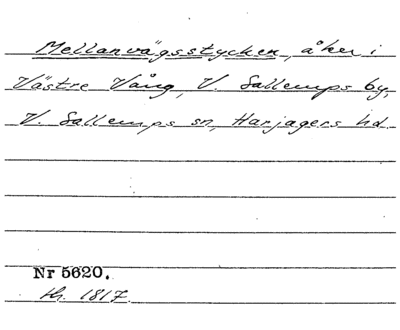 Mellanvägsstycken, åker i
Västre Vång, V. Sallerups by,
V. Sallerups sn, Harjagers hd.
Nr 5620.
th. 1817.